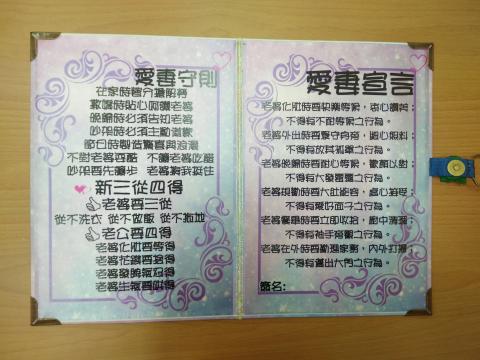 愛妻守則
在家時
時貼心呵護老婆
晚歸時必須告知老婆
吵架時必須主動道歉
節日時製造驚喜與浪漫
不對老婆耍酷 不讓老婆吃醋
吵架要先讓步 老婆罵我挺住
新三從四得
老婆要三從
從不洗衣 從不做飯 從不拖地
老公要四得
老婆化妝要等得
老婆花錢要捨得
老婆發脾氣忍得
老婆生氣要哄得
愛妻宣言
老婆化妝時要快樂等候,衷心讚美;
不得有不耐等候之行為。
老婆外出時要緊守身旁,細心照料;
不得有放其孤單之行為。
老婆晚歸時要耐心等候,歡顏以對;
不得有大發雷霆之行為。
老婆規勸時要大肚能容,虛心領受;
不得有愛好面子之行為。
老婆餐畢時要立即收拾,廚中清潔;
不得有袖手旁觀之行為。
老婆在外時要勤 家務,內外打掃;
不得有邁出大門之行為。
簽名: